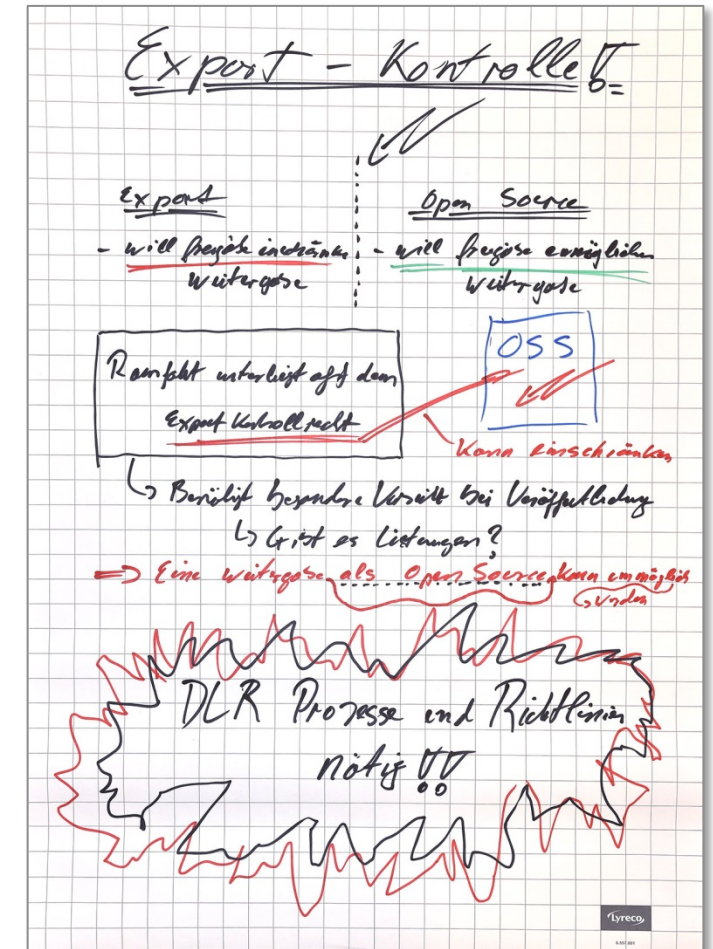 Export - Kontrolle!
Export
- will freigabe inschränken
Weitergabe
Open Source
- will freigabe ermöglichen
Weitergabe
Raumfahrt unterliegt oft dem
Export Kontrollrecht
OSS
Kann einschränken
Benötigt besondere Vorsicht bei Veröffentlichung
Gibt es Listungen?
=> Eine Weitergabe als Open Source kann unmöglich
werden
DLR Prozesse und Richtlinien
nötig!!
Lyreco